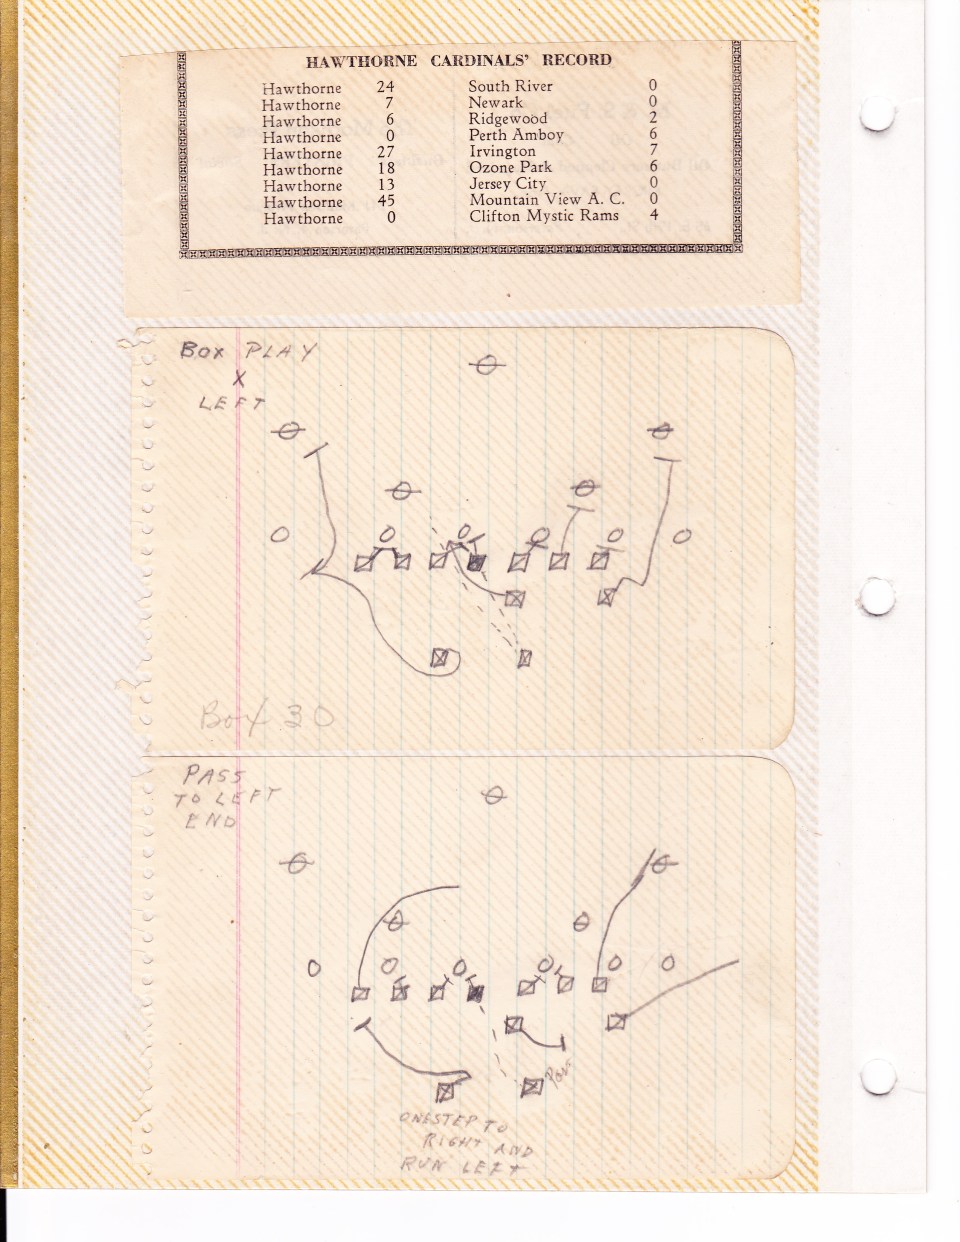 HAWTHORNE CARDINALS' RECORD
Hawthorne 24 South River 0
Hawthorne 7 Newark 0
Hawthorne 6 Ridgewood 2
Hawthorne 0 Perth Amboy 6
Hawthorne 27 Irvington 7
Hawthorne 18 Ozone Park 6
Hawthorne 13 Jersey City 0
Hawthorne 45 Mountain View A. C. 0
Hawthorne 0 Clifton Mystic Rams 4
BOX PLAY
X
LEFT
Box 30
PASS
TO LEFT
END
Pass
ONE STEP TO
RIGHT AND
RUN LEFT